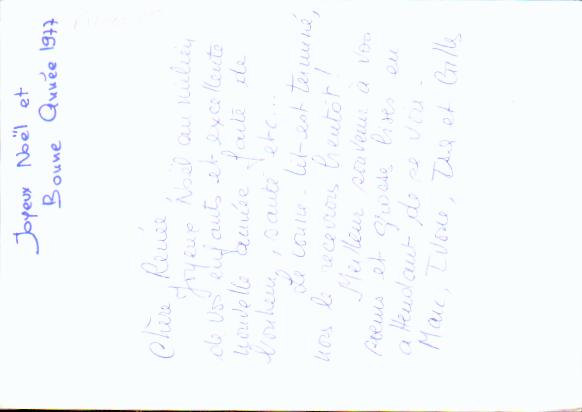 Joyeux Noël et
Bonne Année 1977
Chère Renée,
Joyeux Noël au milieu
de vos enfants et excellente
nouvelle année faite de
bonheur, santé etc...
Le couvre-lit est terminé,
vous le recevrez bientôt!
Meilleur souvenir à vos
soeurs et grosses bises en
attendant de se voir.
Marc, Ivone, et